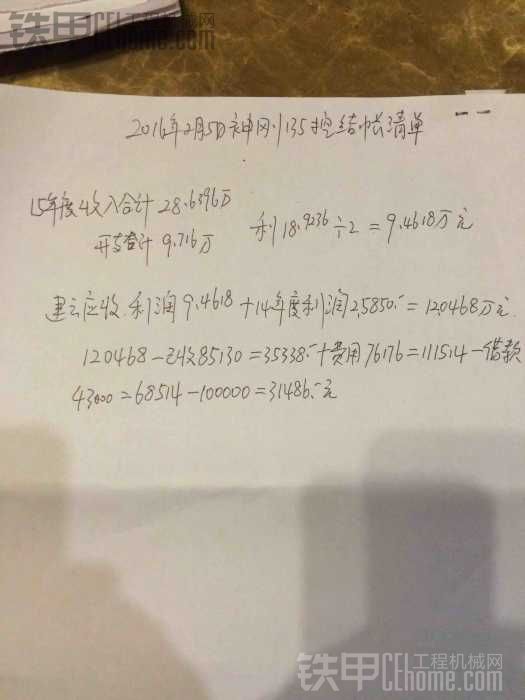 铁甲 工程机械网
CEhome.com
2016年2月5日神冈135挖结帐清单
15年度收入合计28.6396万
开支合计9.716万 利18.9236÷2=9.4618万元
建云应收.利润9.4618+14年度利润2.5850.-=12.0468万元.
120468-已收85130=35338.-+费用76176=111514-借款
43000=68514-100000=31486.-元
铁甲 工程机械网
CEhome.com